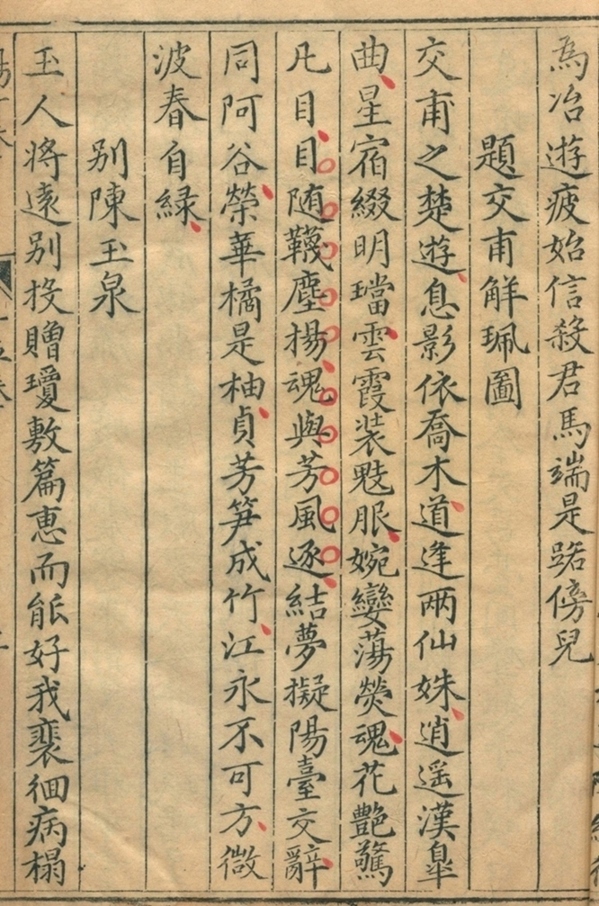 為冶遊疲始信殺君馬端是路傍兒
題交甫解珮圖
交甫之楚遊息影依喬木道逢兩仙姝逍遥漢皐
曲星宿綴明璫雲霞装服婉孌蕩熒魂花艷驚
凡目目随韈塵揚魂與芳風逐結夢擬陽臺交辭
同阿谷榮華橘是柚貞芳笋成竹江永不可方微
波春自緑
别陳玉泉
玉人将遠别投贈瓊敷篇惠而能好我裵徊病榻